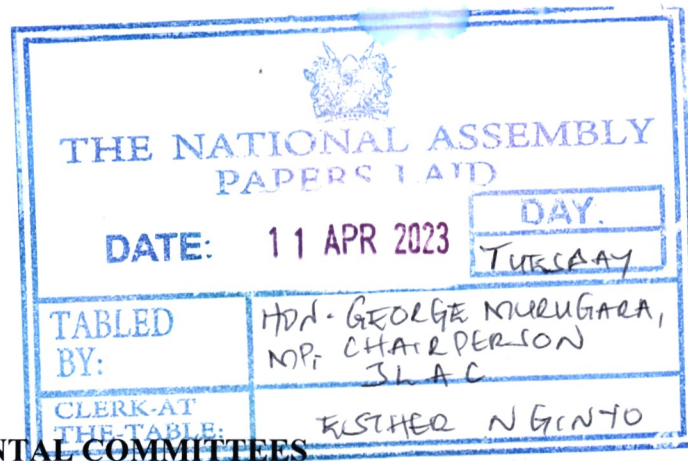 THE NATIONAL ASSEMBLY
PAPERS LAID
DATE: 11 APR 2023
DAY.
TUESDAY
TABLED BY:
HON. GEORGE MURUGARA,
MP, CHAIRPERSON
JLAC
CLERK-AT THE-TABLE:
ESTHER NGINYO
NTAL COMMITTEES